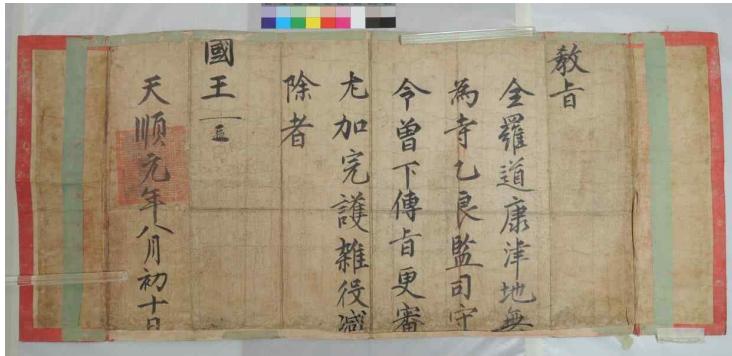 教旨
全羅道康津地無
為寺乙良監司守
令曽下傳旨更審
尤加完護雜役減
除者
國王
天順元年八月初十日